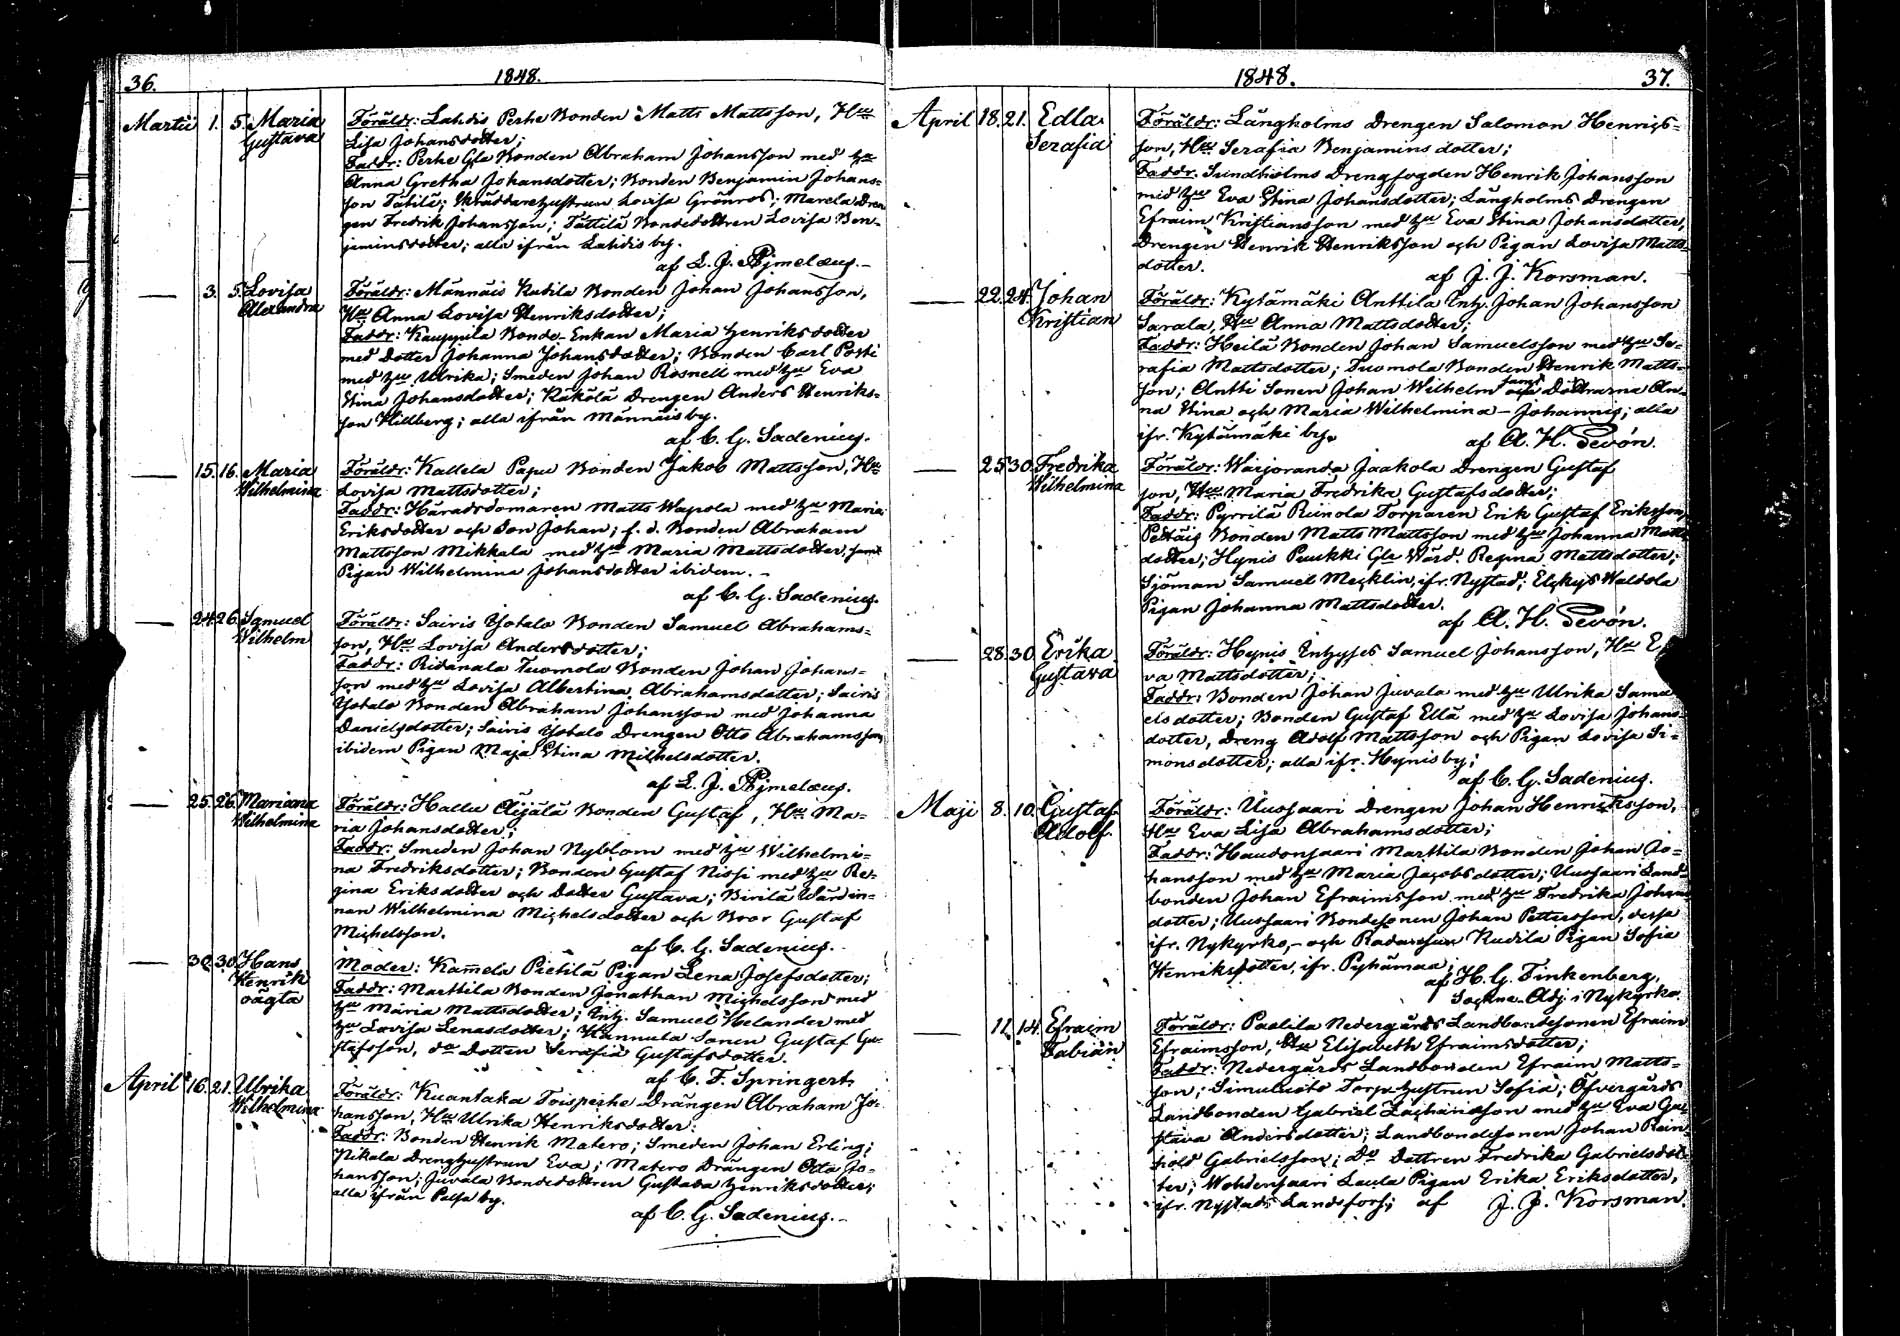 36.
1848.
Martii 1. 5. Maria Gustava
Föräldr: Lahdis Perhe Bonden Matts Mattsson, Hu
Lisa Johansdotter;
Faddr: Perhe Gla Bonden Abraham Johansson med hu
Anna Gretha Johansdotter; Bonden Benjamin Johans=
son Tätilä; Skräddarehustrun Lovisa Grönros; Marela Dren
gen Fredrik Johansson; Tättilä Bondedottren Lovisa Ben-
jaminsdotter; alla ifrån Lahdis by.
af L. J. Ajmelæus.
— 3. 5. Lovisa Alexandra
Föräldr: Männäis Kudila Bonden Johan Johansson,
Hu Anna Lovisa Henriksdotter;
Faddr: Kauppila Bonde-Enkan Maria Henriksdotter
med dotter Johanna Johansdotter; Bonden Carl Posti
med hu Ulrika; Smeden Johan Rosnell med hu Eva
Stina Johansdotter; Käkölä Drengen Anders Henriks=
son Hillberg; alla ifrån Männäis by.
af C. G. Sadenius.
— 15. 16. Maria Wilhelmina
Föräldr: Kallela Papu Bonden Jakob Mattsson, Hu
Lovisa Mattsdotter;
Faddr: Häradsdomaren Matts Wapola med hu Maria
Eriksdotter och Son Johan; f. d. Bonden Abraham
Mattsson Mikkala med hu Maria Mattsdotter, samt
Pigan Wilhelmina Johansdotter ibidem.
af C. G. Sadenius.
— 24. 26. Samuel Wilhelm
Föräldr: Sairis Yotalo Bonden Samuel Abrahams=
son, Hu Lovisa Andersdotter;
Faddr: Ridanala Tuomola Bonden Johan Johans=
son med hu Lovisa Albertina Abrahamsdotter; Sairis
Yotalo Bonden Abraham Johansson med Johanna
Danielsdotter; Sairis Yotalo Drengen Otto Abrahamsson,
ibidem Pigan Maja Stina Mihhelsdotter.
af L. J. Ajmelæus.
— 25. 26. Mariana Wilhelmina
Föräldr: Hallu Äijälä Bonden Gustaf, Hu Ma=
ria Johansdotter;
Faddr: Smeden Johan Nyblom med hu Wilhelmi=
na Fredriksdotter; Bonden Gustaf Nissi med hu Re=
gina Eriksdotter och Dotter Gustava; Birilä Wärdin=
nan Wilhelmina Michelsdotter och Bror Gustaf
Michelsson.
af C. G. Sadenius.
— 30. 30. Hans Henrik oägta
Moder: Kamela Pietilä Pigan Lena Josefsdotter;
Faddr: Marttila Bonden Jonathan Michelsson med
hu Maria Mattsdotter; Inh. Samuel Helander med
hu Lovisa Lenasdotter; Hannula Sonen Gustaf Gu=
stafsson, do Dottren Serafia Gustafsdotter.
af C. F. Springert.
April 16. 21. Ulrika Wilhelmina
Föräldr: Kuantaka Toisperhe Drängen Abraham Jo=
hansson, Hu Ulrika Henriksdotter:
Faddr: Bonden Henrik Matero; Smeden Johan Erling;
Nikala Drenghustrun Eva; Matero Drängen Jo=
hansson; Juvala Bondedottren Gustava Henriksdotter;
alla ifrån Palsa by.
af C. G. Sadenius.
1848.
37.
April 18. 21. Edla Serafia
Föräldr: Långholms Drengen Salomon Henrigs=
son, Hu Serafia Benjamins dotter;
Faddr. Sundholms Drengfogden Henrik Johansson
med hu Eva Stina Johansdotter; Långholms Drengen
Efraim Kristiansson med hu Eva Stina Johansdotter,
Drengen Henrik Henriksson och Pigan Lovisa Matts=
dotter.
af J. J. Korsman.
— 22. 24. Johan Kristian
Föräldr: Kytämäki Anttila Inh. Johan Johansson
Sarala, Hu Anna Mattsdotter;
Faddr: Heilä Bonden Johan Samuelsson med hu Se=
rafia Mattsdotter; Tuomola Bonden Henrik Matts=
son; Antti Sonen Johan Wilhelm samt Döttrarna An=
na Stina och Maria Wilhelmina – Johannis; alla
ifr. Kytämäki by.
af A. H. Levón.
— 25. 30. Fredrika Wilhelmina
Föräldr: Warjoranda Jaakola Drengen Gustaf
son, Hu Maria Fredrika Gustafsdotter;
Faddr: Pyrrilä Reinola Torparen Erik Gustaf Eriksson,
Pettäis Bonden Matts Mattsson med hu Johanna Matts
dotter; Hynis Puukki Gla Wärd. Regina Mattsdotter;
Sjöman Samuel Mecklin, ifr. Nystad; Elekys Waldola
Pigan Johanna Mattsdotter.
af A. H. Levón.
— 28. 30. Erika Gustava
Föräldr: Hynis Inhyses Samuel Johansson, Hu E
va Mattsdotter;
Faddr: Bonden Johan Juvala med hu Ulrika Samu
elsdotter; Bonden Gustaf Ellä med hu Lovisa Johans
dotter, Dreng Adolf Mattsson och Pigan Lovisa Si=
monsdotter; alla ifr. Hynis by;
af C. G. Sadenius.
Maji 8. 10. Gustaf Adolf
Föräldr: Uussaari Drengen Johan Henriksson,
Hu Eva Lisa Abrahamsdotter;
Faddr: Haudonsaari Marttila Bonden Johan Jo=
hansson med hu Maria Jacobsdotter; Uussaari Land=
bonden Johan Efraimsson med hu Fredrika Johans
dotter; Uussaari Bondesonen Johan Pettersson, dessa
ifr. Nykyrko, – och Kudila Pigan Sofia
Henriksdotter, ifr. Pyhämaa;
af H. G. Finkenberg,
Sockne-Adj. i Nykyrko.
— 11. 14. Efraim Fabian
Föräldr: Paelila Nedergårds Landbondesonen Efraim
Efraimsson, Hu Elisabeth Efraimsdotter;
Faddr: Nedergårds Landbonden Efraim Matts=
son; Torp hustrun Sofia; Öfvergårds
Landbonden Gabriel Zachariasson med hu Eva Gu=
stava Andersdotter; Landbondesonen Johan Rein
hold Gabrielsson; Do Dottren Fredrika Gabrielsdot=
ter; Wohdensaari Laula Pigan Erika Eriksdotter,
ifr. Nystads Landsförs; af J. J. Korsman.